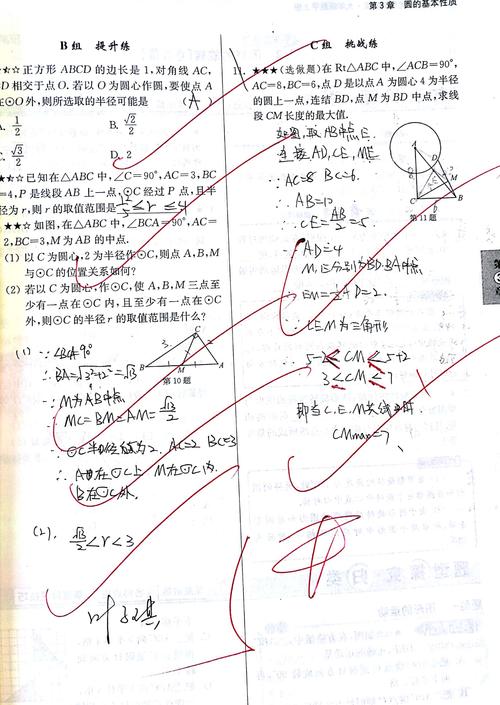 第3章 圆的基本性质
B组 提升练
★☆☆正方形ABCD的边长是1,对角线AC,
BD相交于点O.若以O为圆心作圆,要使点A
在⊙O外,则所选取的半径可能是 (A)
A. 1/2 B. √2/2
C. √3/2 D. 2
★★☆已知在△ABC中,∠C=90°,AC=3,BC
=4,P是线段AB上一点,⊙C经过P点,且半
径为r,则r的取值范围是 12/5≤r≤4
★★☆如图,在△ABC中,∠BCA=90°,AC=
2,BC=3,M为AB的中点.
(1)以C为圆心,2为半径作⊙C,则点A,B,M
与⊙C的位置关系如何?
(2)若以C为圆心,作⊙C,使A,B,M三点至
少有一点在⊙C内,且至少有一点在⊙C
外,则⊙C的半径r的取值范围是什么?
3
C
2
B
M
A
第10题
(1) ∵∠BCA=90°
∴BA=√3²+2²=√13
∵M为AB中点
∴MC=BM=AM=√13/2
∵⊙C半径为2. AC=2 BC=3
∴A在⊙C上 M在⊙C内.
B在⊙C外.
(2). √13/2<r<3
C组 挑战练
11.★★★(选做题)在Rt△ABC中,∠ACB=90°,
AC=8,BC=6,点D是以点A为圆心4为半径
的圆上一点,连结BD,点M为BD中点,求线
段CM长度的最大值.
如图,取AB中点E.
连接AD,CE,ME
∵AC=8 BC=6.
∴AB=10
∴CE=AB/2=5.
∵AD=4
M,E分别为BD.BA中点
∴EM=1/2AD=2.
∴CEM为三角形
∴5-2≤CM≤5+2
3≤CM≤7
即当C.E.M共线时
CMmax=7
A
D
E
M
C
B
第11题